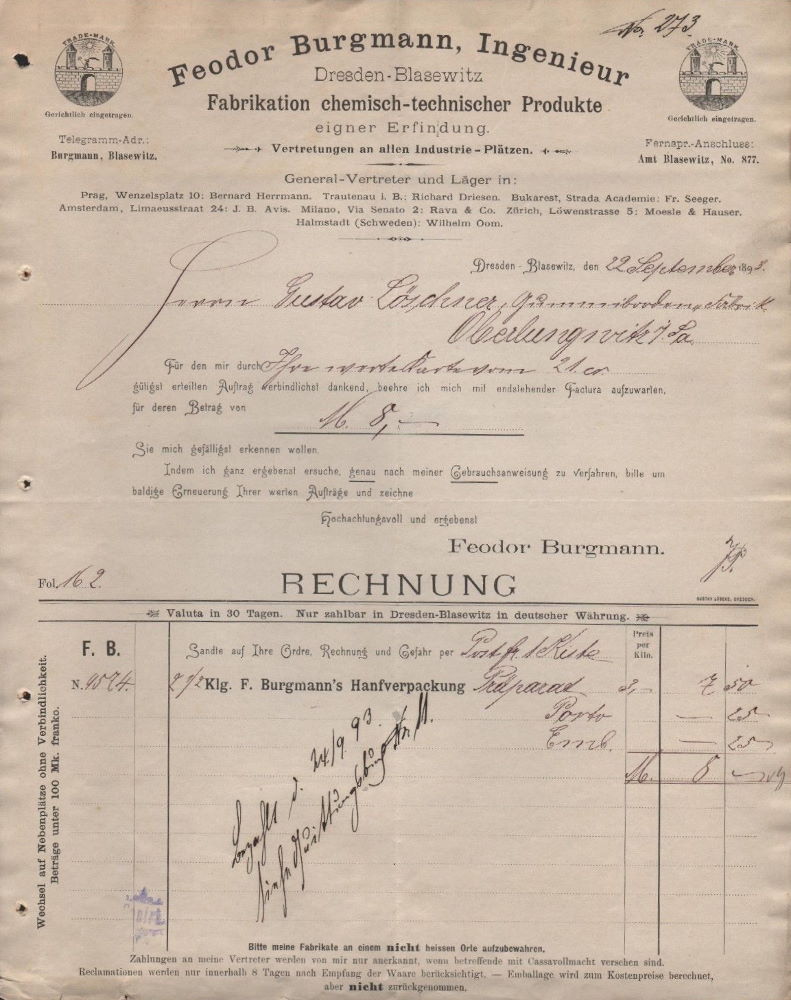 No. 273.
TRADE-MARK
TRADE-MARK
Feodor Burgmann, Ingenieur
Dresden-Blasewitz
Fabrikation chemisch-technischer Produkte
eigner Erfindung.
Vertretungen an allen Industrie-Plätzen.
Gerichtlich eingetragen.
Telegramm-Adr.:
Burgmann, Blasewitz.
Gerichtlich eingetragen.
Fernspr.-Anschluss:
Amt Blasewitz, No. 877.
General-Vertreter und Läger in:
Prag, Wenzelsplatz 10: Bernard Herrmann. Trautenau i. B.: Richard Driesen. Bukarest, Strada Academie: Fr. Seeger.
Amsterdam, Limaeusstraat 24: J. B. Avis. Milano, Via Senato 2: Rava & Co. Zürich, Löwenstrasse 5: Moesle & Hauser.
Halmstadt (Schweden): Wilhelm Oom.
Dresden-Blasewitz, den 22 September 1893.
Herrn Gustav Löschner, Fabrik
Oberlungwitz i/Sa.
Für den mir durch Ihre werte Karte vom 21. cr.
gütigst erteilten Auftrag verbindlichst dankend, beehre ich mich mit endstehender Factura aufzuwarten,
für deren Betrag von
M. 8,—
Sie mich gefälligst erkennen wollen.
Indem ich ganz ergebenst ersuche, genau nach meiner Gebrauchsanweisung zu verfahren, bitte um
baldige Erneuerung Ihrer werten Aufträge und zeichne
Hochachtungsvoll und ergebenst
Feodor Burgmann.
Fol. 162.
RECHNUNG
GUSTAV LÖBCKE, DRESDEN.
Valuta in 30 Tagen. Nur zahlbar in Dresden-Blasewitz in deutscher Währung.
Wechsel auf Nebenplätze ohne Verbindlichkeit.
Beträge unter 100 Mk. franko.
F. B.
Sandte auf Ihre Ordre, Rechnung und Gefahr per Post fr. 1 Kiste
Preis
per
Kilo.
N. 9574. 2 1/2 Klg. F. Burgmann's Hanfverpackung Präparat 3,— 7 50
Porto — 25
Emb. — 25
M. 8 —
bezahlt d. 24/9 93.
Bitte meine Fabrikate an einem nicht heissen Orte aufzubewahren.
Zahlungen an meine Vertreter werden von mir nur anerkannt, wenn betreffende mit Cassavollmacht versehen sind.
Reclamationen werden nur innerhalb 8 Tagen nach Empfang der Waare berücksichtigt. — Emballage wird zum Kostenpreise berechnet,
aber nicht zurückgenommen.